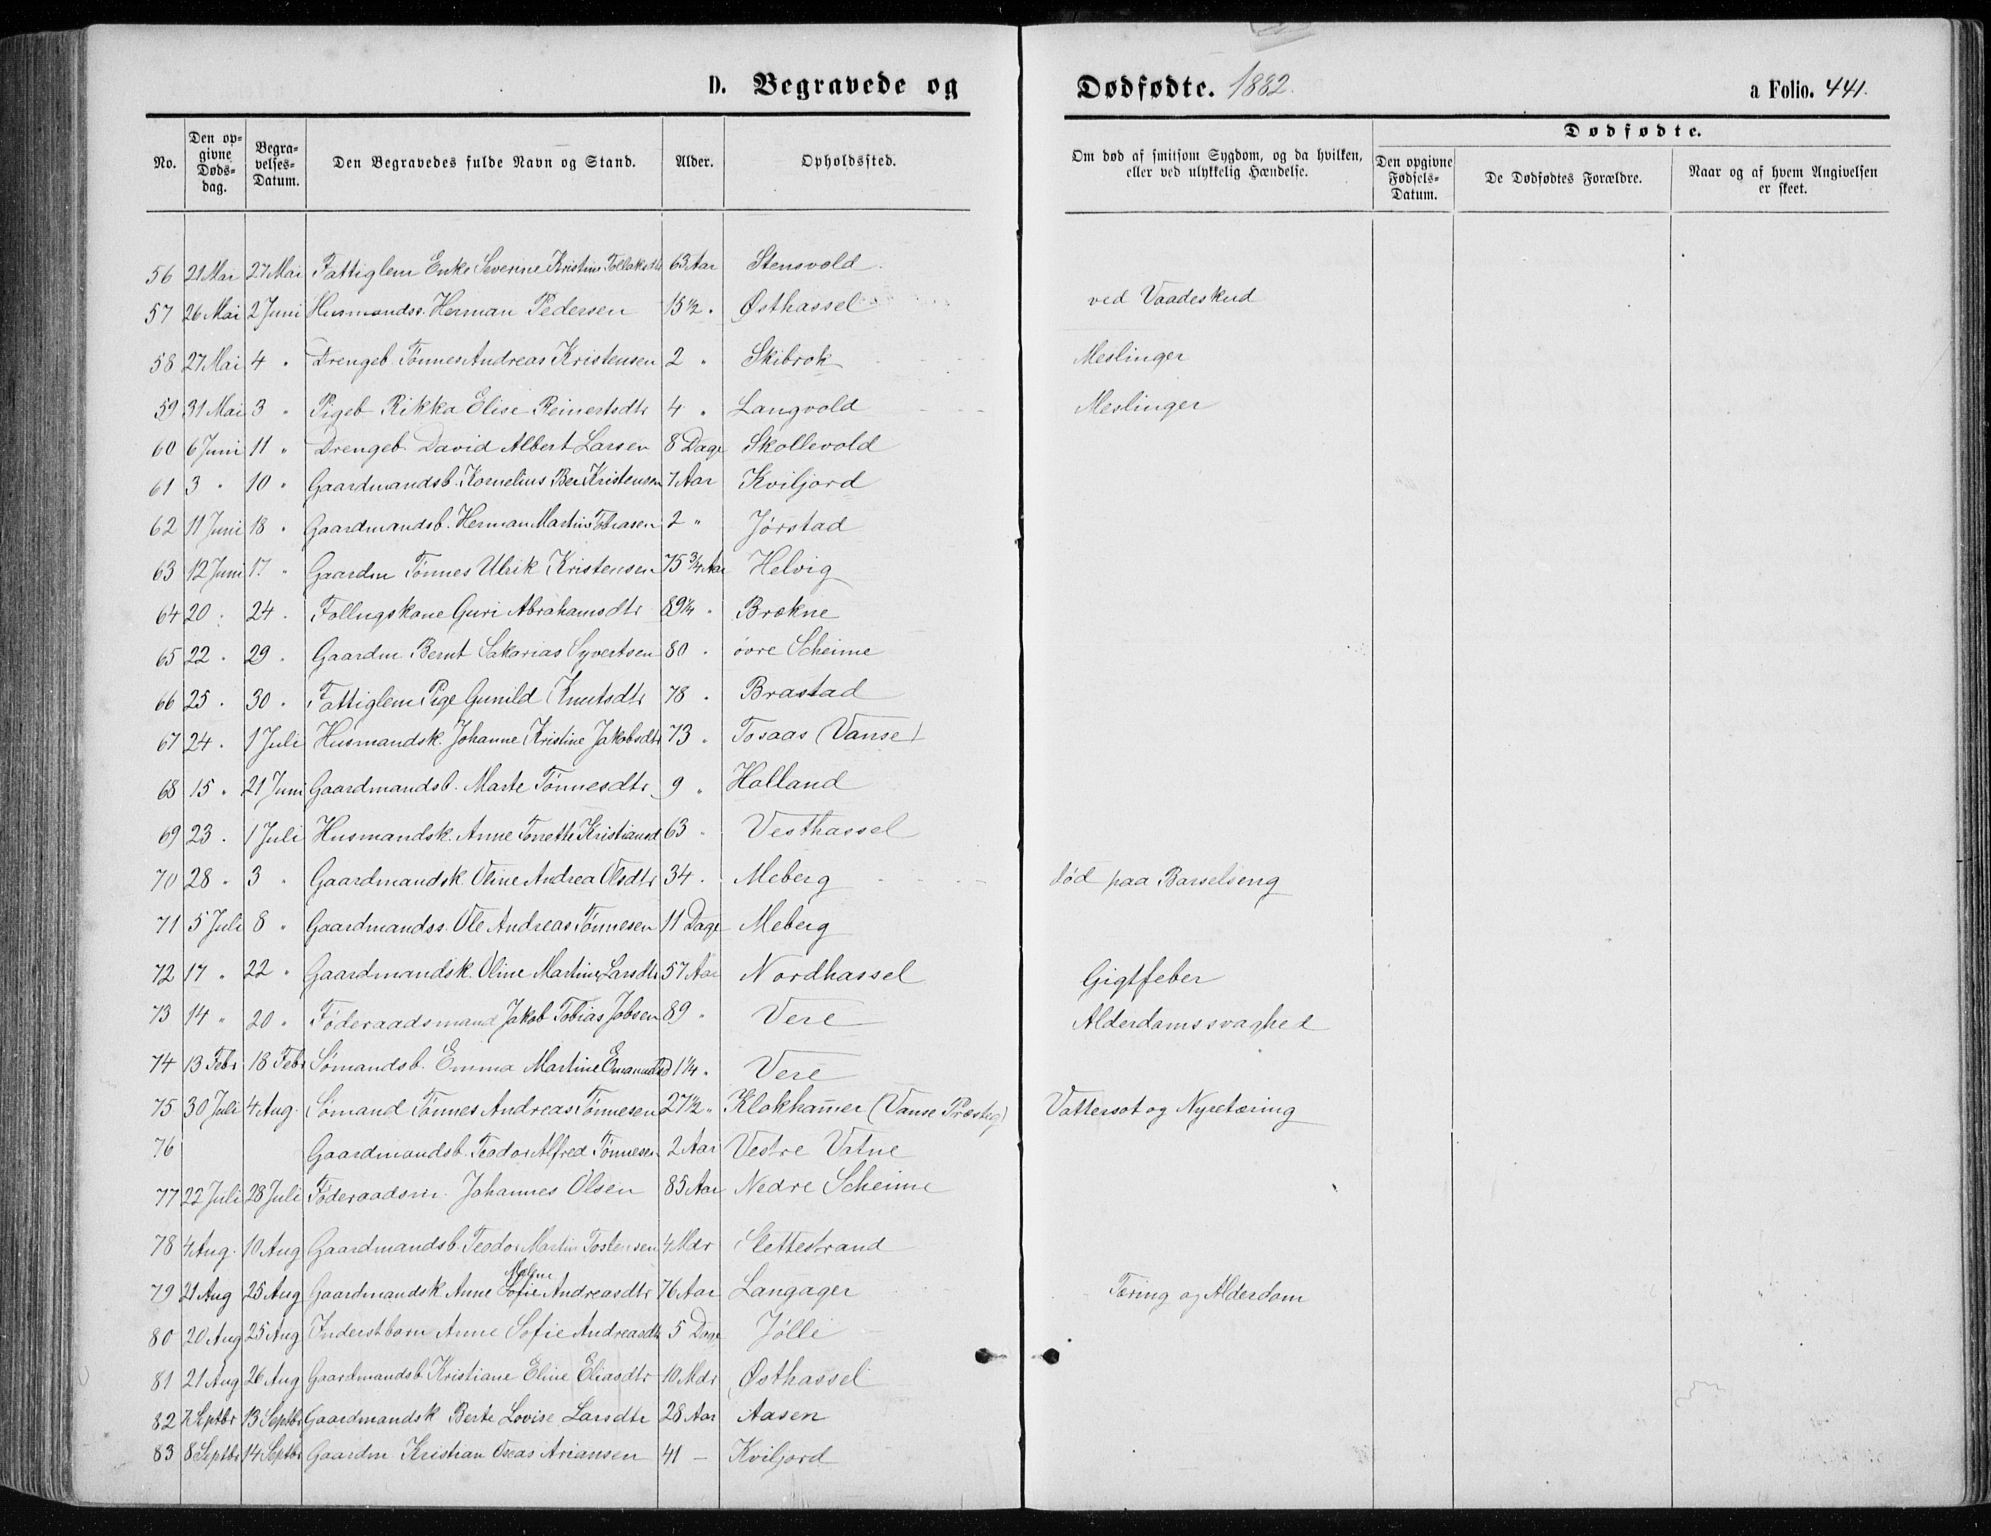 D. Begravede og Dødfødte. 1882. a Folio. 441.
No. Den opgivne Dødsdag. Begravelses-Datum. Den Begravedes fulde Navn og Stand. Alder. Opholdssted. Om død af smitsom Sygdom, og da hvilken, eller ved ulykkelig Hændelse. Dødfødte. Den opgivne Fødsels-Datum. De Dødfødtes Forældre. Naar og af hvem Angivelsen er skeet.
56 21 Mai 27 Mai Fattiglem Enke Severine Kristine Tollaksdtr 63 Aar Stensvold
57 26 Mai 2 Juni Husmandss. Herman Pedersen 15½ " Østhassel ved Vaadeskud
58 27 Mai 4 " Drengeb. Tønnes Andreas Kristensen 2 " Skibrok Meslinger
59 31 Mai 3 " Pigeb Rikka Elise Reinertsdtr 4 " Langvold Meslinger
60 6 Juni 11 " Drengeb. David Albert Larsen 8 Dage Skollevold
61 3 " 10 " Gaardmandsb. Kornelius Ber Kristensen 7 Aar Kviljord
62 11 Juni 18 " Gaardmandsb. Herman Martin Tobiasen 2 " Jørstad
63 12 Juni 17 " Gaardm Tønnes Ulrik Kristensen 75¾ Aar Helvig
64 20 " 24 " Follugskone Guri Abrahamsdtr 89¼ " Brekne
65 22 " 29 " Gaardm Bernt Sakarias Syvertsen 80 " øvre Scheime
66 25 " 30 " Fattiglem Pige Gunild Knutsdtr 78 " Brastad
67 24 " 1 Juli Husmandsk. Johanne Kristine Jakobsdtr 73 " Tosaas (Vanse)
68 15 " 21 Juni Gaardmandsb. Marte Tønnesdtr 9 " Holland
69 23 " 1 Juli Husmandsk. Anne Torrethe Kristiansd 63 " Vesthassel
70 28 " 3 " Gaardmandsk. Oline Andrea Olsdtr 34 " Meberg død paa Barselseng
71 5 Juli 8 " Gaardmandss. Ole Andreas Tønnesen 11 Dage Meberg
72 17 " 22 " Gaardmandsk. Oline Martine Larsdtr 57 Aar Nordhassel Gigtfeber
73 14 " 20 " Føderaadsmand Jakob Tobias Jobsen 89 " Vere Alderdomssvaghed
74 13 Febr 18 Febr Sømandsb. Emma Martine Emanuelsd 1¼ " Vere
75 30 Juli 4 Aug. Sømand Tønnes Andreas Tønnesen 27½ " Klokhammer (Vanse Præsteg) Vattersot og Nyretæring
76 Gaardmandsb. Teodor Alfred Tønnesen 2 Aar Vestre Vatne
77 22 Juli 28 Juli Føderaadsm. Johannes Olsen 85 Aar Nedre Scheime
78 4 Aug. 10 Aug Gaardmandsb. Teodor Martin Tostensen 4 Mdr Slettestrand
79 21 Aug 25 Aug Gaardmandsk Anne Sofie Malene Andreasdtr 76 Aar Langager Tæring og Alderdom
80 20 Aug 25 Aug Inderstbarn Anne Sofie Andreasdtr 5 Dage Jølle
81 21 Aug 26 Aug Gaardmandsb Kristiane Eline Eliasdtr 10 Mdr Østhassel
82 7 Septbr 13 Septbr Gaardmandsk Berte Lovise Larsdtr 28 Aar Aasen
83 8 Septbr 14 Septbr Gaardm Kristian Oseas Ariansen 41 — Kviljord